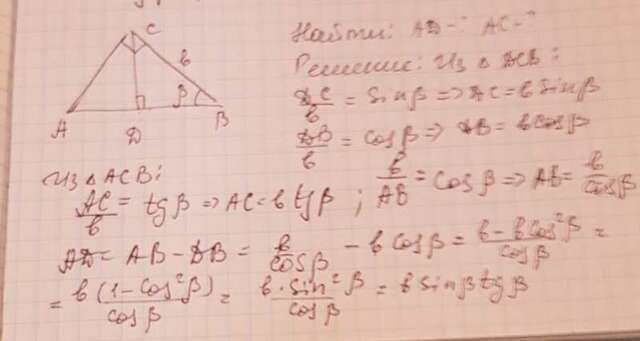 C
в
β
A
D
B
Найти: AD-? AC-?
Решение: Из △ DCB:
DC/в = Sinβ => DC = вSinβ
DB/в = cosβ => DB = вcosβ
Из △ ACB:
AC/в = tgβ => AC = в tgβ ; в/AB = Cosβ => AB = в/cosβ
AD = AB - DB = в/cosβ - в Cosβ = в - вCos²β/cosβ =
= в(1-Cos²β)/cosβ = в·Sin²β/cosβ = в sinβ tgβ